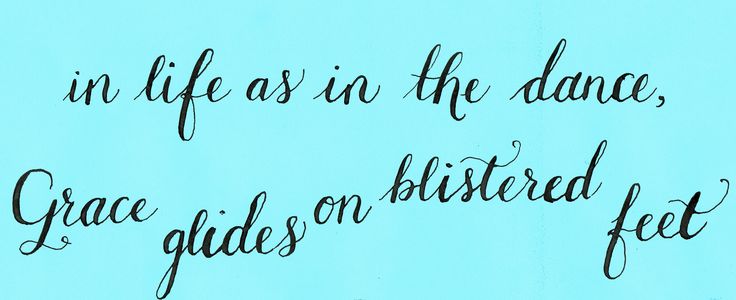 in life as in the dance,
Grace glides on blistered feet